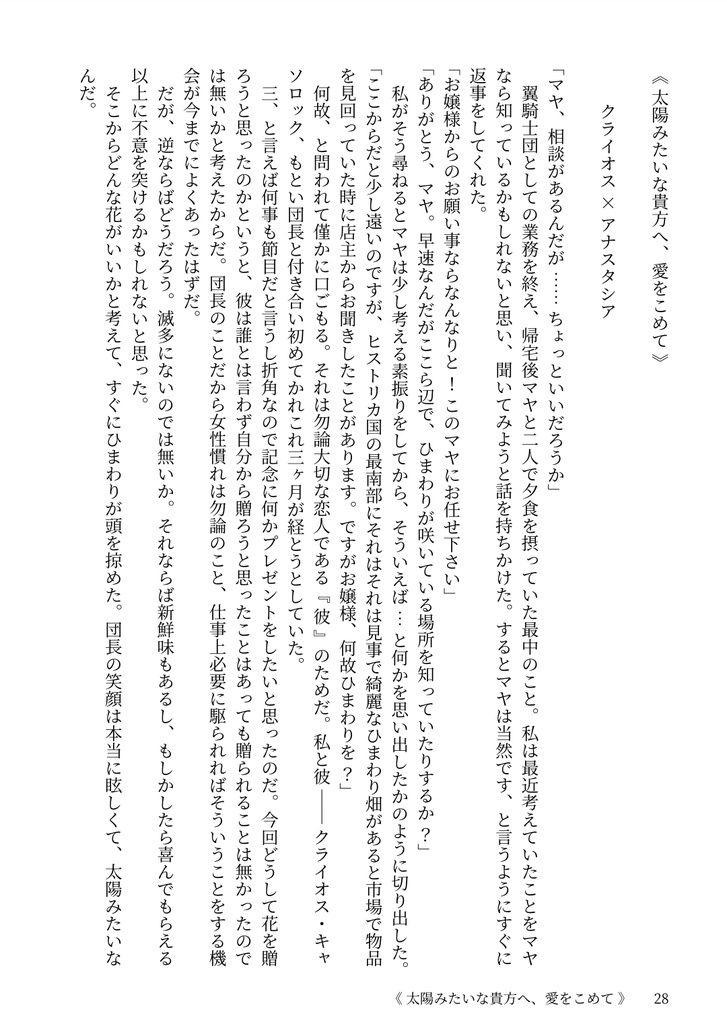 《 太陽みたいな貴方へ、愛をこめて 》
クライオス × アナスタシア
「マヤ、相談があるんだが …… ちょっといいだろうか」
　翼騎士団としての業務を終え、帰宅後マヤと二人で夕食を摂っていた最中のこと。私は最近考えていたことをマヤ
なら知っているかもしれないと思い、聞いてみようと話を持ちかけた。するとマヤは当然です、と言うようにすぐに
返事をしてくれた。
「お嬢様からのお願い事ならなんなりと！このマヤにお任せ下さい」
「ありがとう、マヤ。早速なんだがここら辺で、ひまわりが咲いている場所を知っていたりするか？」
　私がそう尋ねるとマヤは少し考える素振りをしてから、そういえば … と何かを思い出したかのように切り出した。
「ここからだと少し遠いのですが、ヒストリカ国の最南部にそれはそれは見事で綺麗なひまわり畑があると市場で物品
を見回っていた時に店主からお聞きしたことがあります。ですがお嬢様、何故ひまわりを？」
　何故、と問われて僅かに口ごもる。それは勿論大切な恋人である『彼』のためだ。私と彼 ―― クライオス・キャ
ソロック、もとい団長と付き合い初めてかれこれ三ヶ月が経とうとしていた。
　三、と言えば何事も節目だと言うし折角なので記念に何かプレゼントをしたいと思ったのだ。今回どうして花を贈
ろうと思ったのかというと、彼は誰とは言わず自分から贈ろうと思ったことはあっても贈られることは無かったので
は無いかと考えたからだ。団長のことだから女性慣れは勿論のこと、仕事上必要に駆られればそういうことをする機
会が今までによくあったはずだ。
　だが、逆ならばどうだろう。滅多にないのでは無いか。それならば新鮮味もあるし、もしかしたら喜んでもらえる
以上に不意を突けるかもしれないと思った。
　そこからどんな花がいいかと考えて、すぐにひまわりが頭を掠めた。団長の笑顔は本当に眩しくて、太陽みたいな
んだ。
《 太陽みたいな貴方へ、愛をこめて 》 28